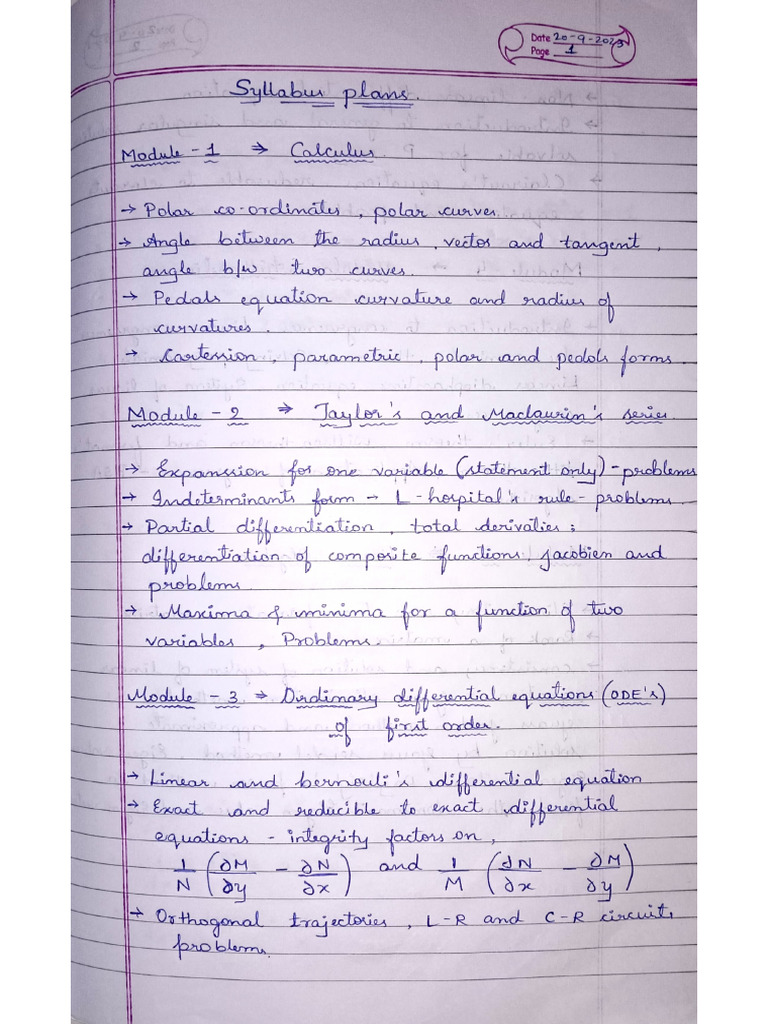 Date 20-9-2023
Page 1
Syllabus plans.
Module - 1 ⇒ Calculus
→ Polar co-ordinates, polar curves
→ Angle between the radius, vector and tangent,
angle b/w two curves.
→ Pedals equation curvature and radius of
curvatures.
→ Cartession, parametric, polar and pedols forms.
Module - 2 ⇒ Taylor's and Maclaurin's series.
→ Expanssion for one variable (statement only) - problems
→ Indeterminants form - L-hospital's rule - problems.
→ Partial differentiation, total derivaties;
differentiation of composite functions, jacobien and
problems
→ Maxima & minima for a function of two
variables, Problems.
Module - 3 ⇒ Ordinary differential equations (ODE's)
of first order
→ Linear and bernouli's differential equation
→ Exact and reducible to exact differential
equations - integrity factors on,
1/N (∂M/∂y - ∂N/∂x) and 1/M (∂N/∂x - ∂M/∂y)
→ Orthogonal trajectories, L-R and C-R circuits
problems.